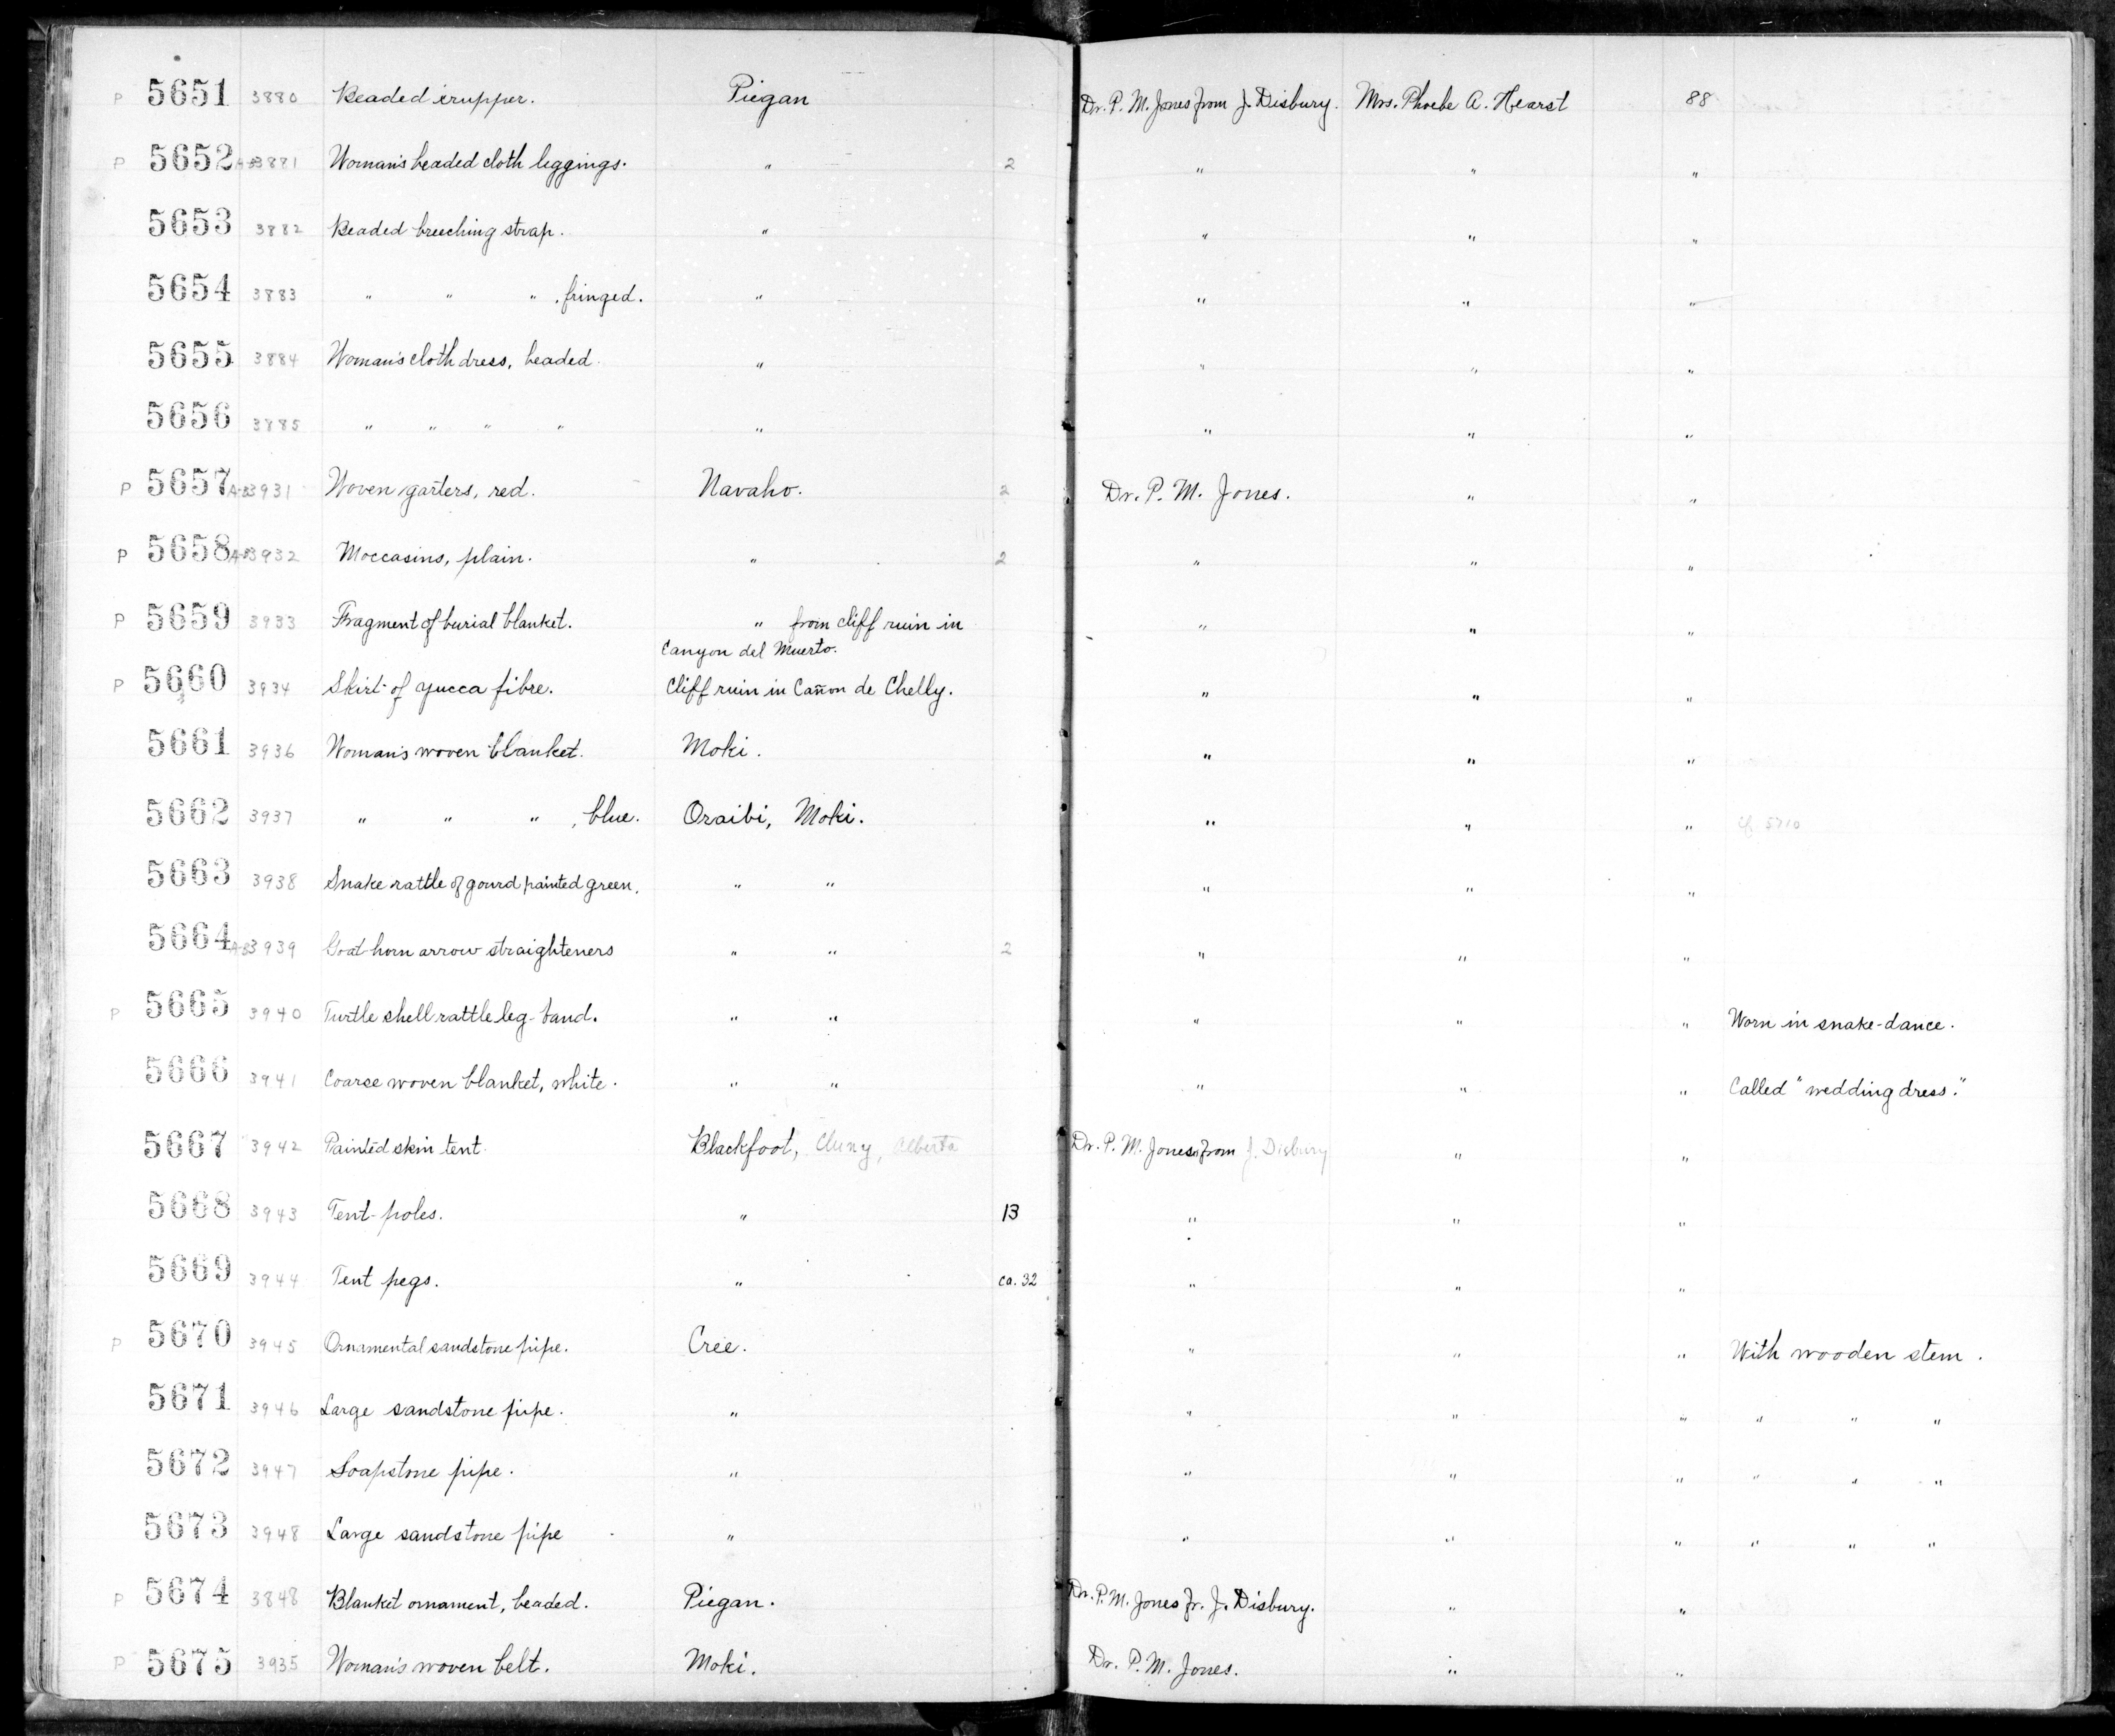 P 5651 3880 Beaded crupper. Piegan Dr. P. M. Jones from J. Disbury. Mrs. Phoebe A. Hearst 88
P 5652 A-B 3881 Woman's beaded cloth leggings. " 2 " " "
5653 3882 Beaded breeching strap. " " " "
5654 3883 " " " , fringed. " " " "
5655 3884 Woman's cloth dress, beaded. " " " "
5656 3885 " " " " " " " "
P 5657 A-B 3931 Woven garters, red. Navaho. 2 Dr. P. M. Jones. " "
P 5658 A-B 3932 Moccasins, plain. " 2 " " "
P 5659 3933 Fragment of burial blanket. " from cliff ruin in " " "
Canyon del Muerto.
P 5660 3934 Skirt of yucca fibre. Cliff ruin in Cañon de Chelly. " " "
5661 3936 Woman's woven blanket. Moki. " " "
5662 3937 " " " , blue. Oraibi, Moki. " " " cf. 5710
5663 3938 Snake rattle of gourd painted green. " " " " "
5664 A-B 3939 Goat-horn arrow straighteners " " 2 " " "
P 5665 3940 Turtle shell rattle leg-band. " " " " " Worn in snake-dance.
5666 3941 Coarse woven blanket, white. " " " " " Called "wedding dress."
5667 3942 Painted skin tent. Blackfoot, Cluny, Alberta Dr. P. M. Jones from J. Disbury " "
5668 3943 Tent-poles. " 13 " " "
5669 3944 Tent pegs. " ca. 32 " " "
P 5670 3945 Ornamental sandstone pipe. Cree. " " " With wooden stem.
5671 3946 Large sandstone pipe. " " " " " " "
5672 3947 Soapstone pipe. " " " " " " "
5673 3948 Large sandstone pipe " " " " " " "
P 5674 3848 Blanket ornament, beaded. Piegan. Dr. P. M. Jones fr. J. Disbury. " "
P 5675 3935 Woman's woven belt. Moki. Dr. P. M. Jones. " "